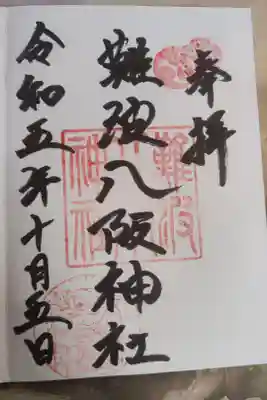 奉拝
難波八阪神社
令和五年十月五日